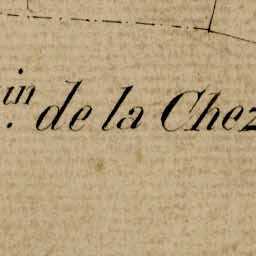 in. de la Chez